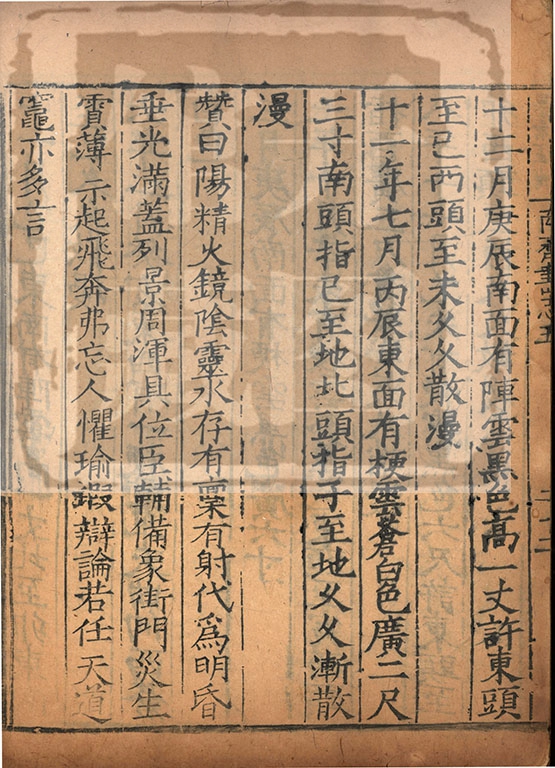 南齊書志五
十二月庚辰南面有陣雲黑色高一丈許東頭
至巳西頭至未乆乆散漫
十一年七月丙辰東面有梗雲蒼白色廣二尺
三寸南頭指巳至地北頭指子至地乆乆漸散
漫
贊曰陽精火鏡陰靈水存有稟有射代爲明昏
垂光滿蓋列景周渾具位臣輔備象街門災生
薄示起飛奔弗忘人懼瑜瑕辯論若任天道
竈亦多言